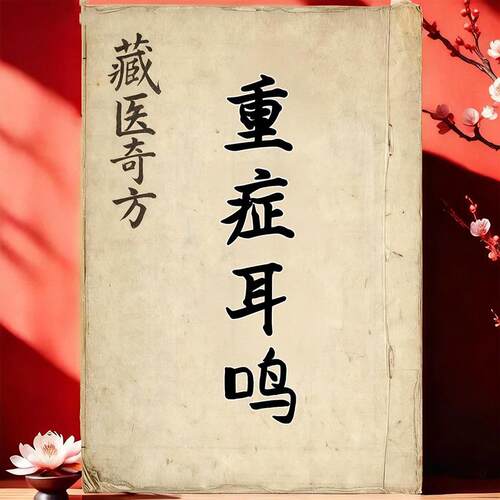 藏医奇方
重症耳鸣